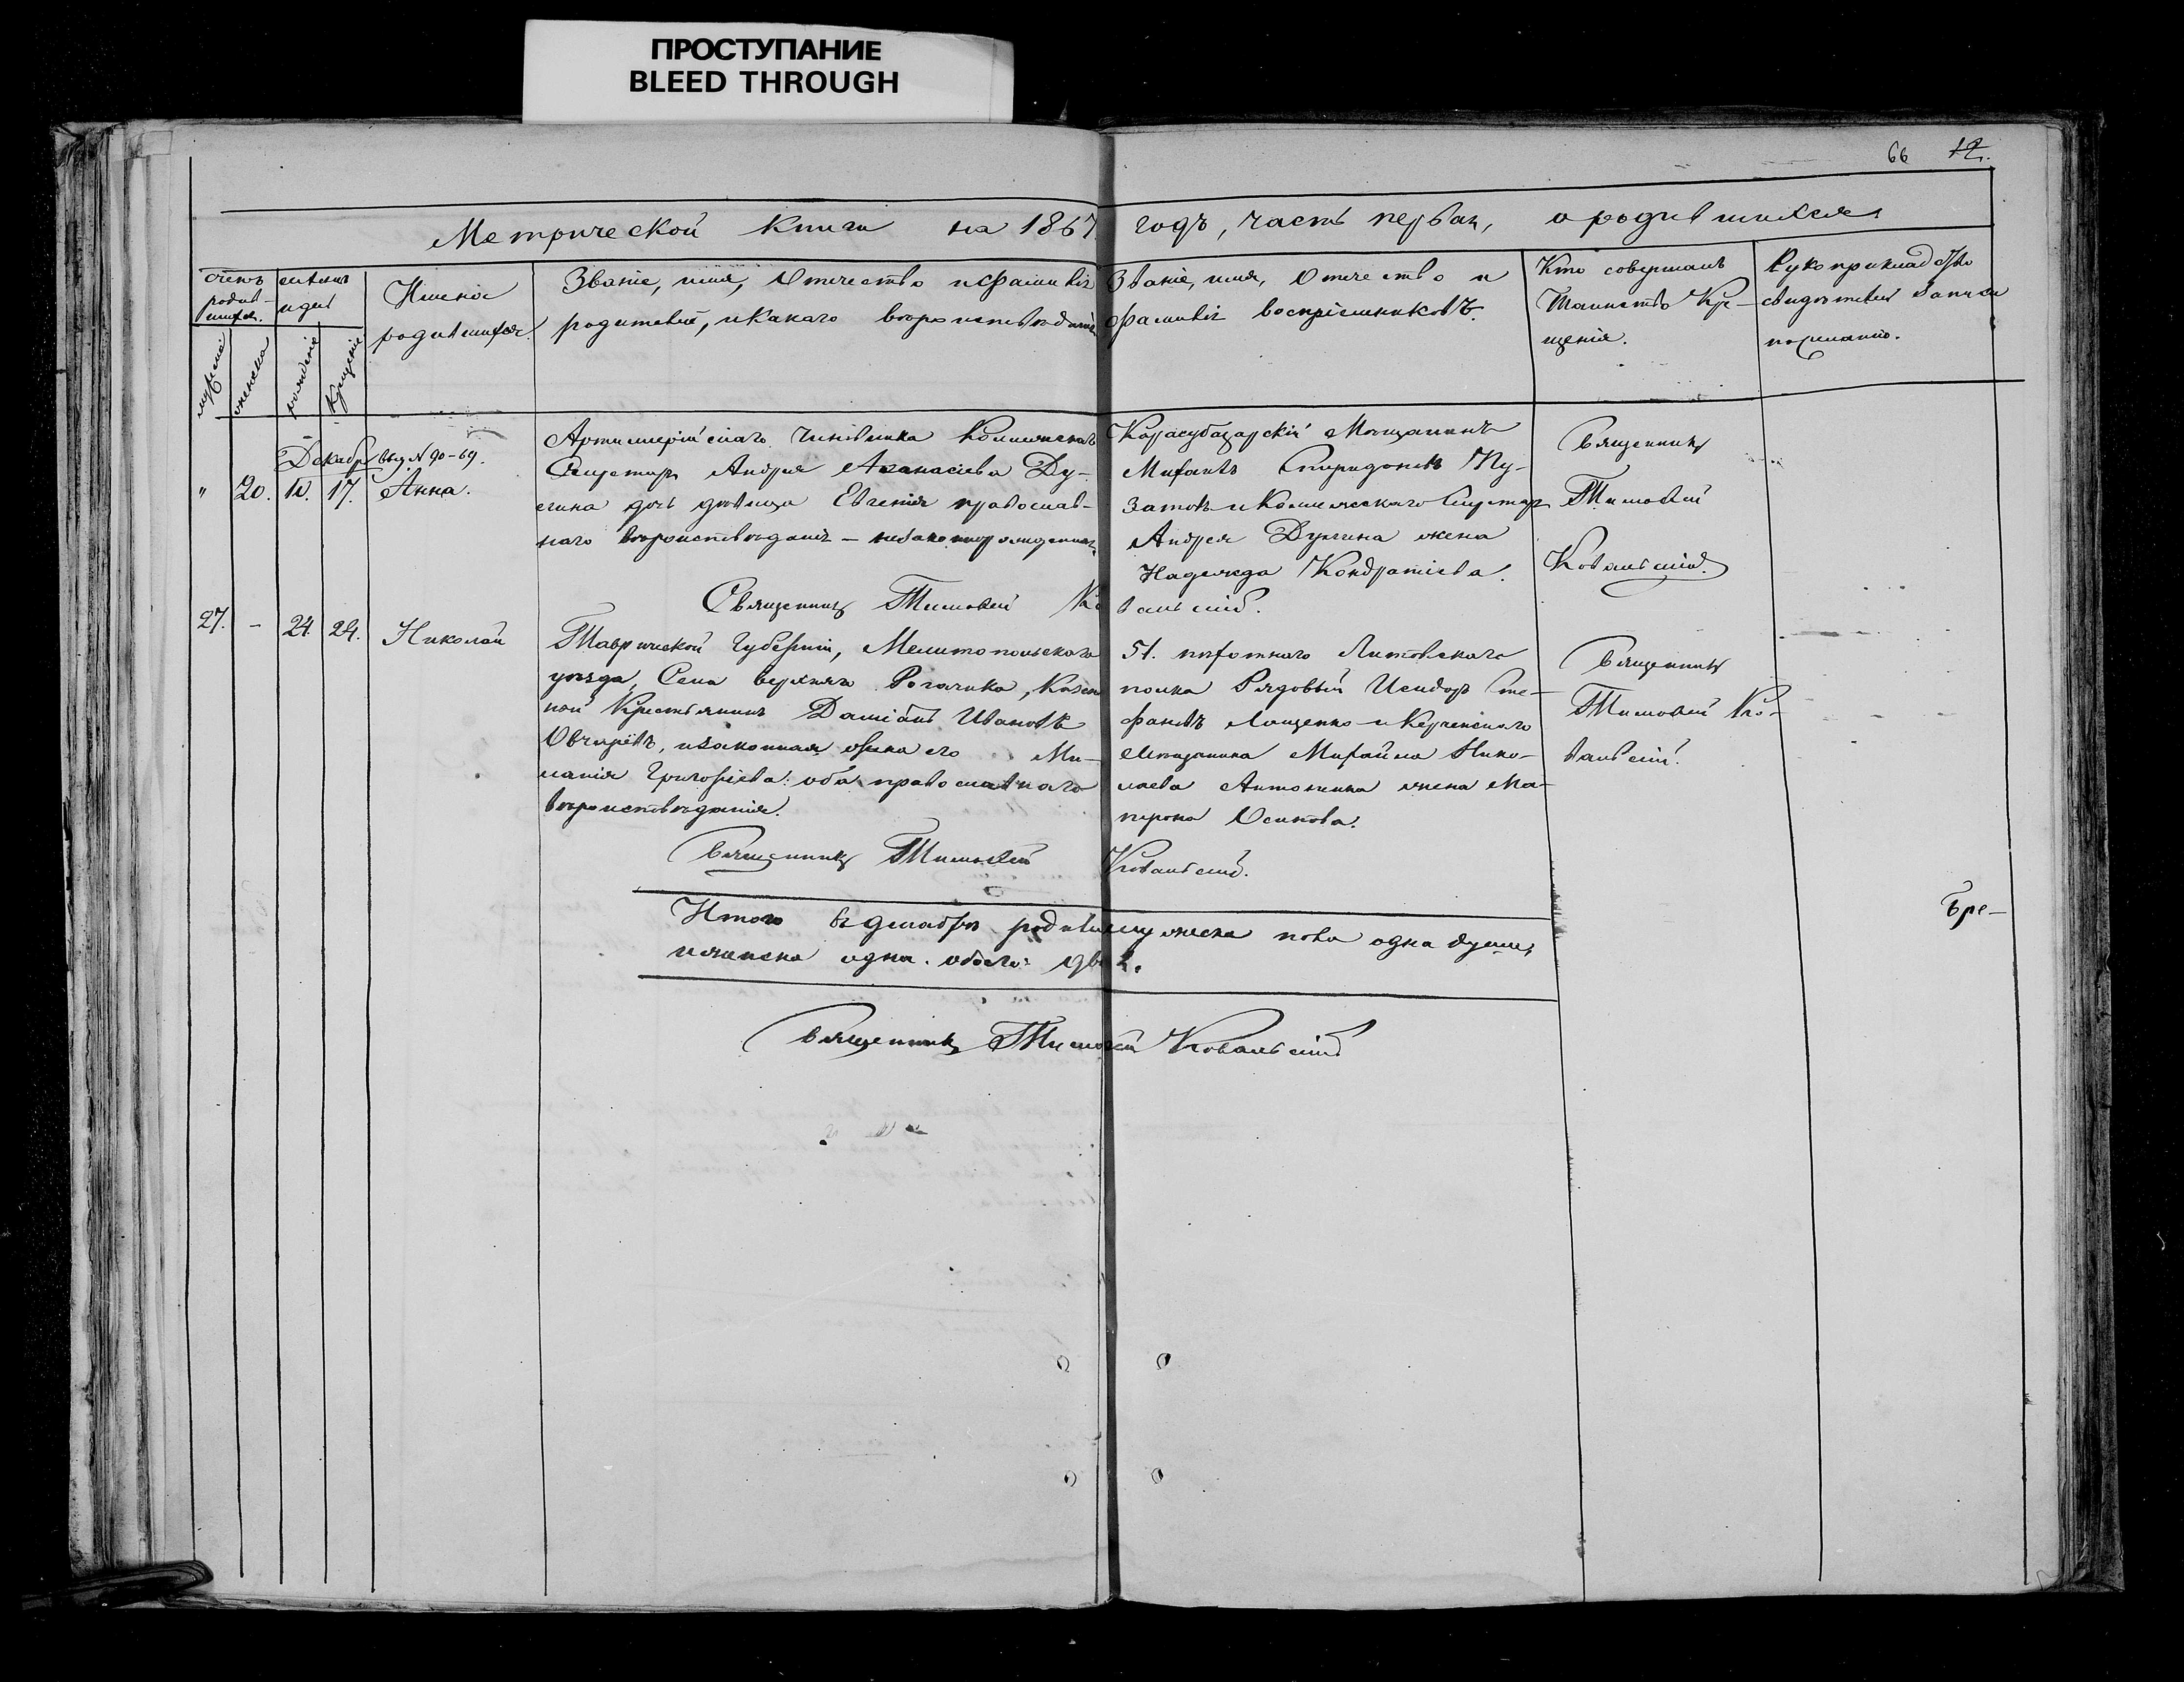 ПРОСТУПАНИЕ
BLEED THROUGH
66 12.
Метрической книги на 1867 годъ, часть первая, о родившихся
Счетъ родив-
шихся.
мужска
женска
рожденіе
крещеніе
Имена
родившихся.
Званіе, имя, Отчество и фамилія
родителей, и какого вероисповѣданія
Званіе, имя, Отчество и
фамилія воспріемниковъ.
Кто совершалъ
Таинство Кре-
щенія.
Рукоприкладство
свидѣтелей записи
по желанію.
Декабрь выд № 90-69.
" 20. 10. 17. Анна.
Артиллерійскаго чиновника Коллежскаго
Секретаря Андрея Аѳанасіева Ду-
дочь дѣвица Евгенія православ-
наго вѣроисповѣданія – незаконнорожденная
Карасубазарскій Мѣщанинъ
Михаилъ Спиридоновъ Пу-
затовъ и Коллежскаго Секретаря
Андрея жена
Надежда Кондратіева.
Священникъ
Тимоѳей
Ковальскій.
Священникъ Тимоѳей Ковальскій.
27. – 24. 24. Николай
Таврической Губерніи, Мелитопольскаго
уѣзда, Села верхняго Рогачика, Казен
ной Крестьянинъ Даміанъ Ивановъ
Овчаровъ, и законная жена его Ме-
ланія Григоріева: оба православнаго
вѣроисповѣданія.
51. пѣхотнаго Литовскаго
полка Рядовый Исидоръ Сте-
фановъ Лащенко и Керченскаго
Мѣщанина Михаила Нико-
лаева Антонина жена Ма-
трона Осипова.
Священникъ
Тимоѳей Ко-
вальскій.
Священникъ Тимоѳей Ковальскій.
Итого въ декабрѣ родилось мужеска пола одна душа,
и женска одна. обоего двѣ 2.
Бре-
Священникъ Тимоѳей Ковальскій